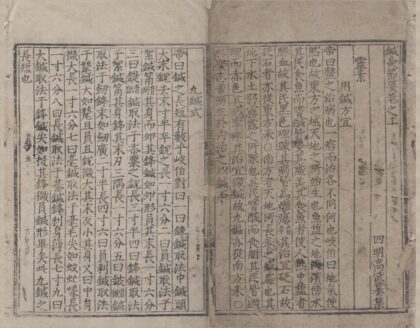 鍼灸節要卷之下
四明高武纂集
靈素
用鍼方宜
帝曰醫之治病也一病而治各不同何也岐伯曰地氣使
然也故東方之域天地之所始生也魚鹽之地海濱傍水
其民食魚而嗜鹹魚者使人熱中鹽者
勝血故其民皆黑色踈理其病皆為癰瘍其治宜砭石故
砭石者亦從東方來○南方者天地所長養陽之所盛處也其
地下水土弱霧露之所聚也其民嗜酸而食胕其民
理而赤色其病攣痺其治宜微鍼故九鍼亦從南方來○
形樂志苦病生於肉治之以鍼石
九鍼式
帝曰鍼之長短有數乎岐伯對曰一曰鑱鍼取法巾鍼頭
大末銳去末半寸卒銳之長一寸六分二曰員鍼取法于絮
鍼筩其身而卵其鋒鍼如卵形員其末長一寸六分
三曰鍉鍼取法于黍粟之銳長三寸半四曰鋒鍼取法
于絮鍼筩其身鋒其末刃三隅長一寸六分五曰鈹鍼
取法于劍鋒末如劍廣二寸半長四寸六曰員利鍼取法
于氂鍼大如氂且員且銳微大其末反小其身又曰中身
微大長一寸六分七曰毫鍼取法于毫毛尖如蚊虻喙長
一寸六分八曰長鍼取法于綦鍼鋒利身薄長七寸九曰
大鍼取法于鋒鍼尖如梃其鋒微員鍼形畢矣此九鍼之
長短也